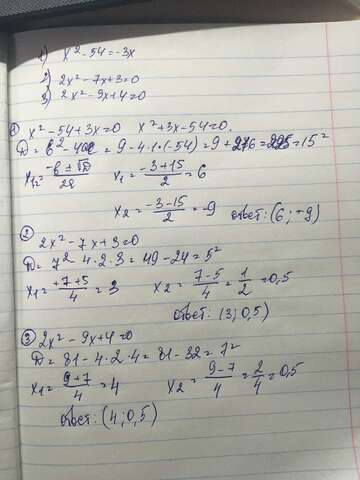 1) x²-54=-3x
2) 2x²-7x+3=0
3) 2x²-9x+4=0
① x²-54+3x=0 x²+3x-54=0.
D=b²-4ac=9-4·1·(-54)=9+216=225=15²
x₁,₂=-b±√D/2a x₁=-3+15/2=6
x₂=-3-15/2=-9 ответ: (6;-9)
② 2x²-7x+3=0
D=7²-4·2·3=49-24=5²
x₁=+7+5/4=3 x₂=7-5/4=1/2=0,5
ответ: (3;0,5)
③ 2x²-9x+4=0
D=81-4·2·4=81-32=7²
x₁=9+7/4=4 x₂=9-7/4=2/4=0,5
ответ: (4;0,5)